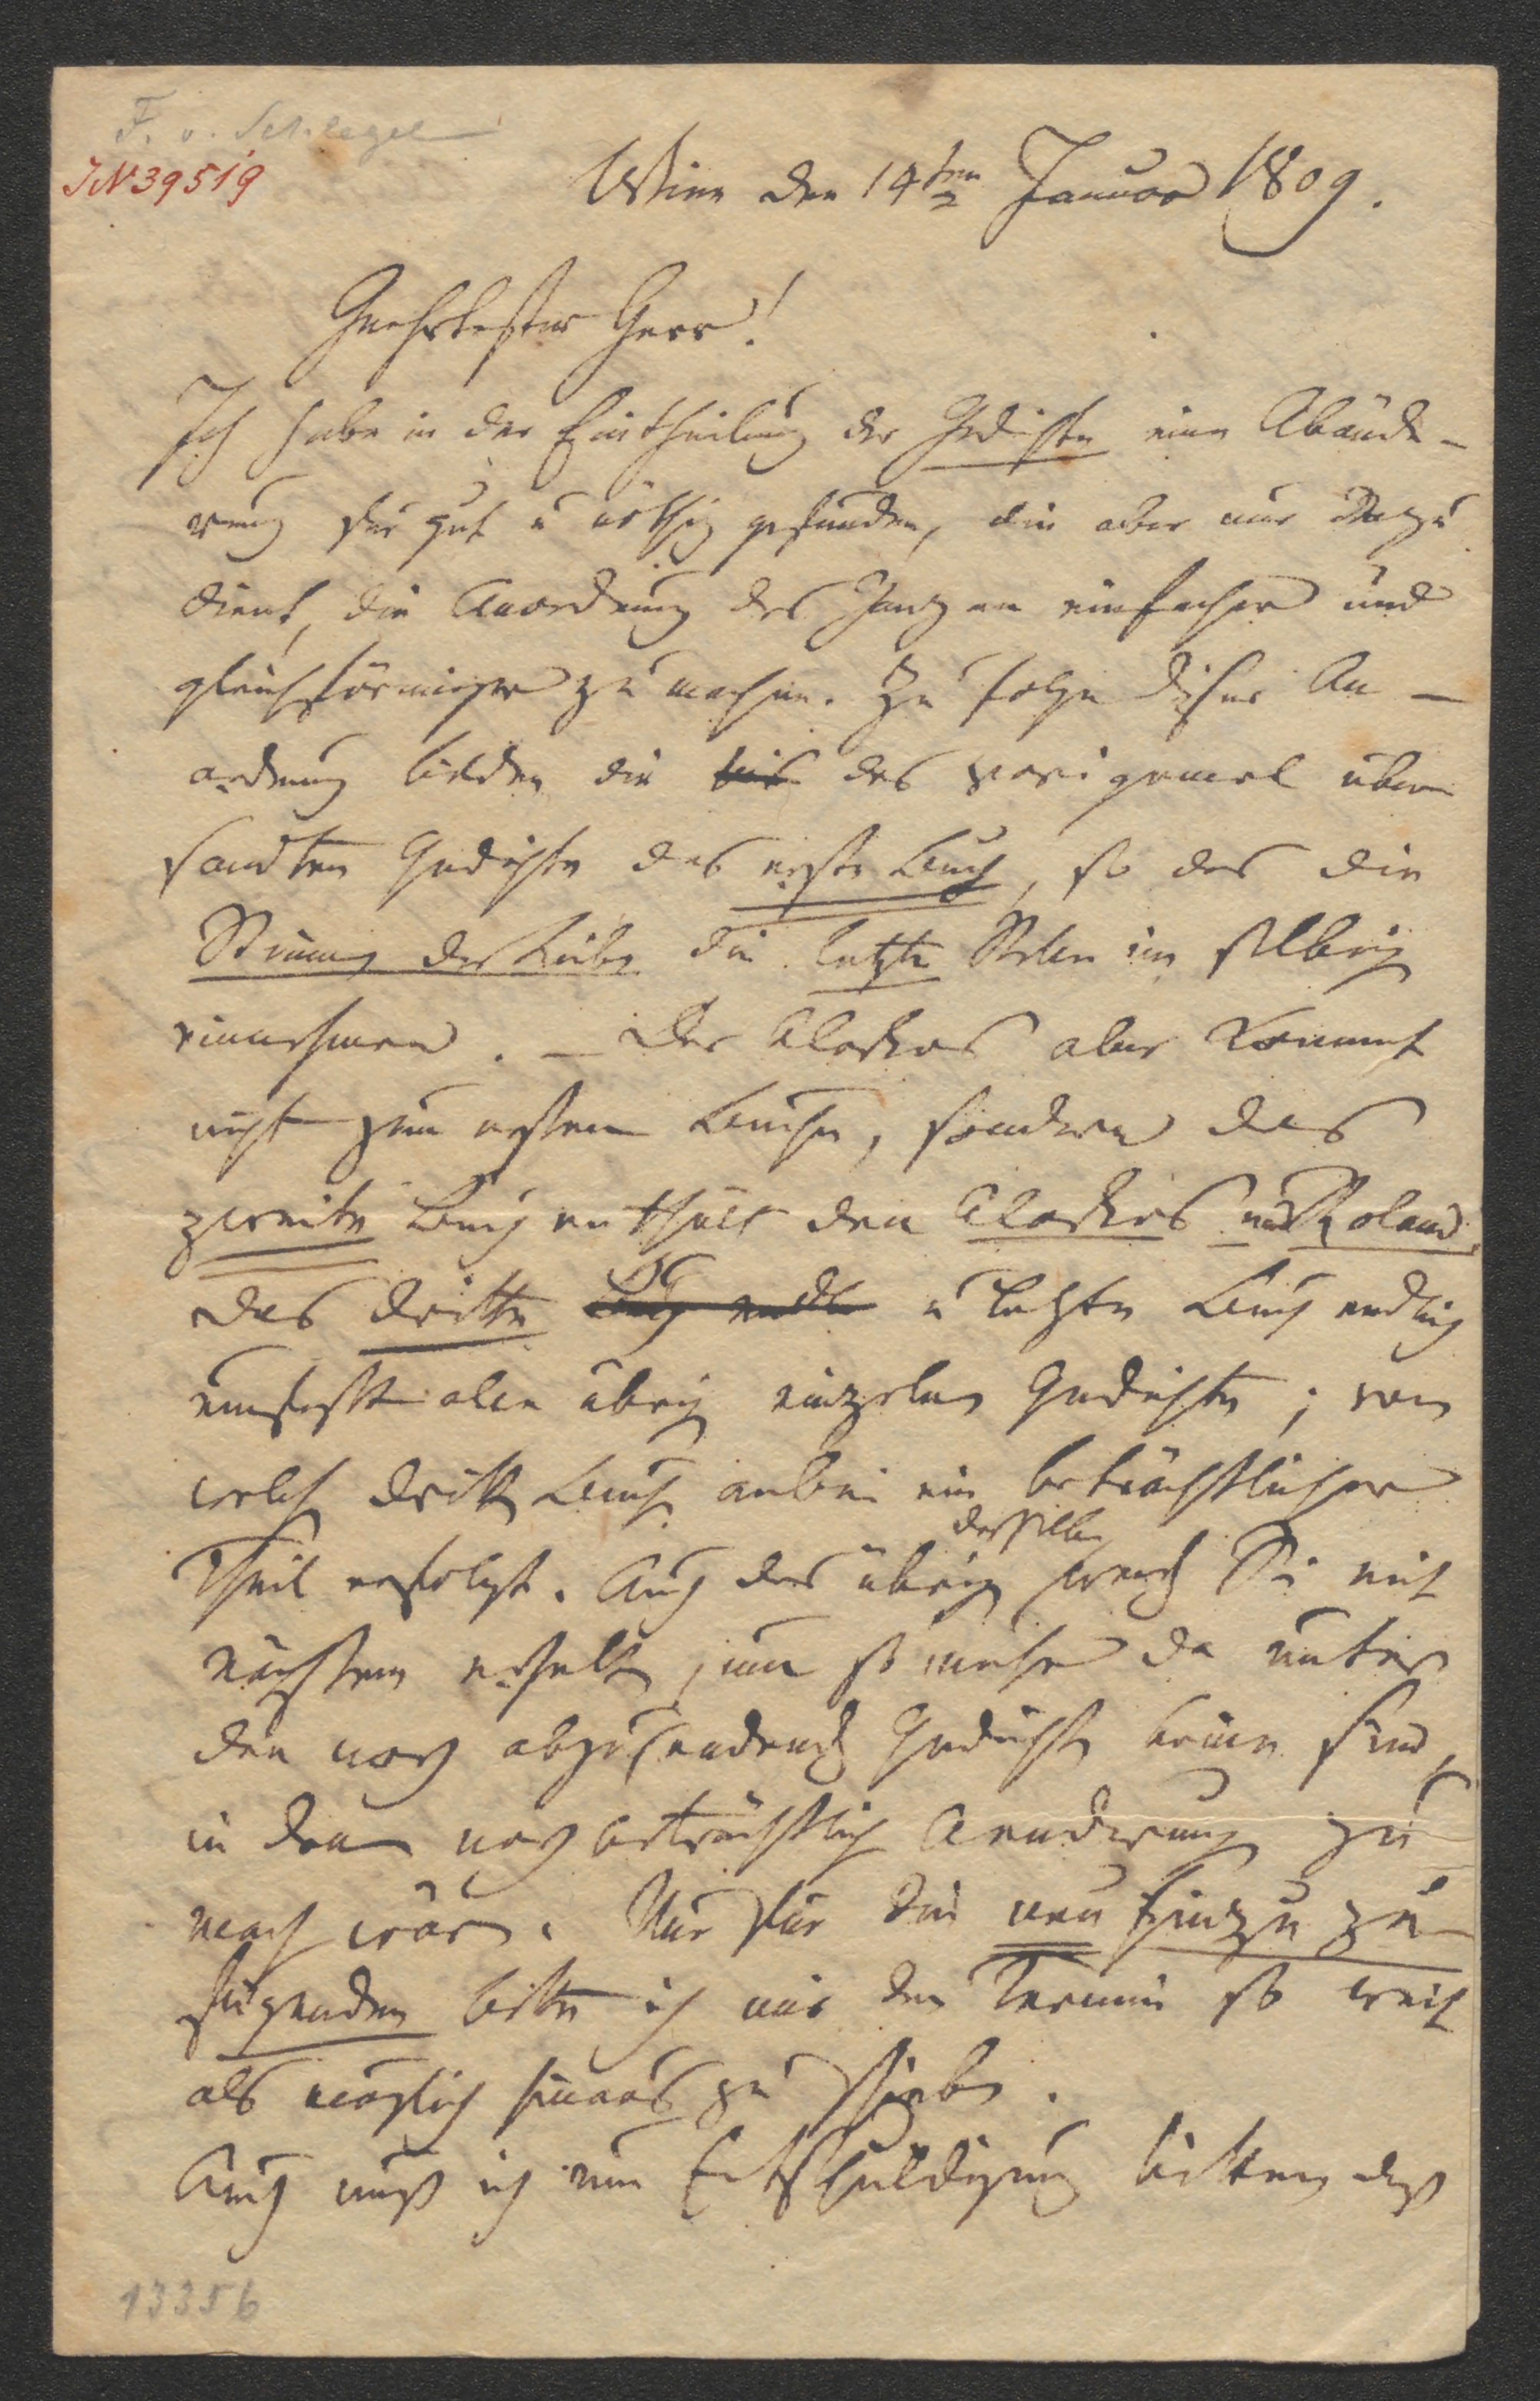 F. v. Schlegel
JN 39519
Wien den 14ten Januar 1809.
Geehrtester Herr!
Ich habe in der Eintheilung der Gedichte eine Abände-
rung für gut u nöthig gefunden, die aber nur dazu
dient, die Anordnung des Ganzen einfacher und
gleichförmiger zu machen. Zu folge dieser An-
ordnung bilden die bis des vorigemal über
sandten Gedichte das erste Buch, so daß die
Stimmen der Liebe die letzte Stelle im selbigen
einnehmen. – Der Alarkos aber kommt
nicht zum ersten Buche, sondern das
zweite Buch enthält den Alarkos und Roland,
das dritte Buch endl u letzte Buch endlich
umfaßt alle übrigen einzelnen Gedichte; von
welchem dritten Buche anbei ein beträchtlicher
desselben
Theil erfolgt. Auch das übrige werden Sie mit
nächstem erhalten, um so mehr da unter
den noch abzusendenden Gedichten keine sind,
in denen noch beträchtliche Aenderungen zu
machen wären. Nur für die neu hinzu zu
fügenden bitte ich mir den Termin so weit
als möglich hinaus zu schieben.
Auch muß ich um Entschuldigung bitten daß
13356